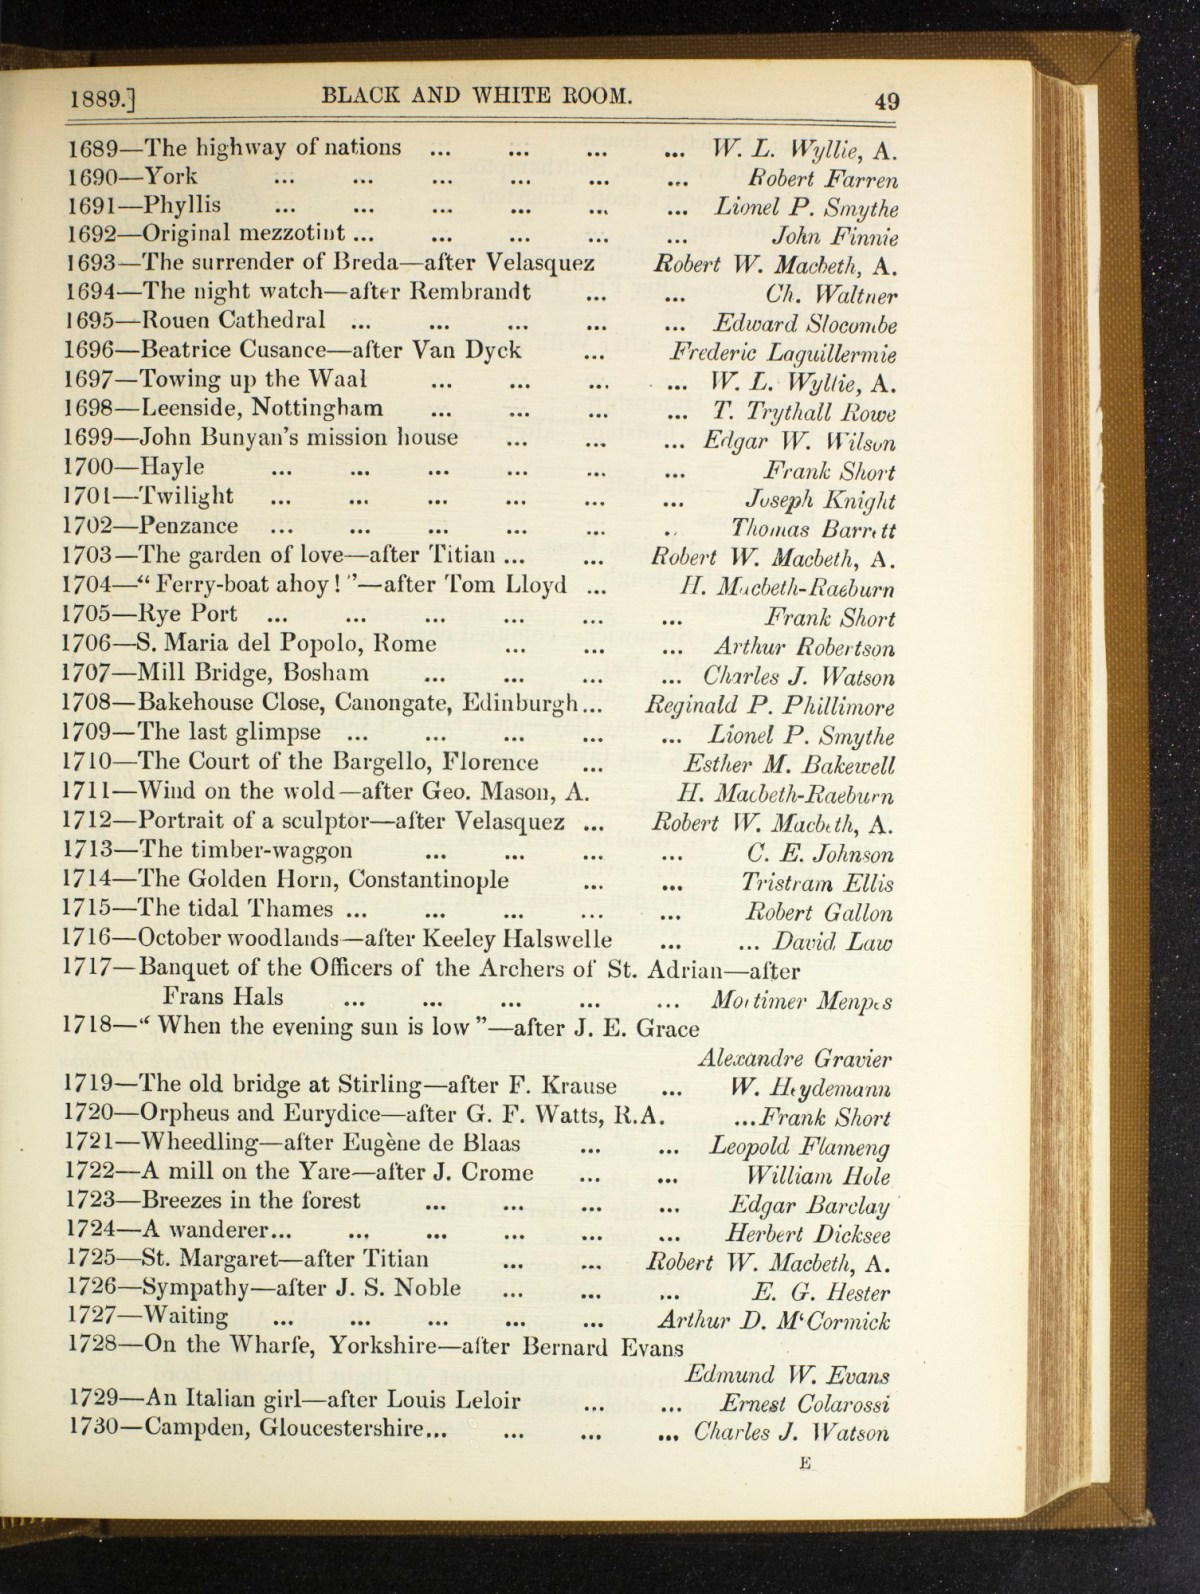 1889.] BLACK AND WHITE ROOM. 49
1689—The highway of nations ... ... ... ... W. L. Wyllie, A.
1690—York ... ... ... ... ... ... Robert Farren
1691—Phyllis ... ... ... ... ... ... Lionel P. Smythe
1692—Original mezzotint ... ... ... ... ... John Finnie
1693—The surrender of Breda—after Velasquez Robert W. Macbeth, A.
1694—The night watch—after Rembrandt ... ... Ch. Waltner
1695—Rouen Cathedral ... ... ... ... ... Edward Slocombe
1696—Beatrice Cusance—after Van Dyck ... Frederic Laguillermie
1697—Towing up the Waal ... ... ... ... W. L. Wyllie, A.
1698—Leenside, Nottingham ... ... ... ... T. Trythall Rowe
1699—John Bunyan's mission house ... ... ... Edgar W. Wilson
1700—Hayle ... ... ... ... ... ... Frank Short
1701—Twilight ... ... ... ... ... ... Joseph Knight
1702—Penzance ... ... ... ... ... .. Thomas Barrett
1703—The garden of love—after Titian ... ... Robert W. Macbeth, A.
1704—“ Ferry-boat ahoy! ”—after Tom Lloyd ... H. Macbeth-Raeburn
1705—Rye Port ... ... ... ... ... ... Frank Short
1706—S. Maria del Popolo, Rome ... ... ... Arthur Robertson
1707—Mill Bridge, Bosham ... ... ... ... Charles J. Watson
1708—Bakehouse Close, Canongate, Edinburgh... Reginald P. Phillimore
1709—The last glimpse ... ... ... ... ... Lionel P. Smythe
1710—The Court of the Bargello, Florence ... Esther M. Bakewell
1711—Wind on the wold—after Geo. Mason, A. H. Macbeth-Raeburn
1712—Portrait of a sculptor—after Velasquez ... Robert W. Macbeth, A.
1713—The timber-waggon ... ... ... ... C. E. Johnson
1714—The Golden Horn, Constantinople ... ... Tristram Ellis
1715—The tidal Thames ... ... ... ... ... Robert Gallon
1716—October woodlands—after Keeley Halswelle ... ... David Law
1717—Banquet of the Officers of the Archers of St. Adrian—after
Frans Hals ... ... ... ... ... Mortimer Menpes
1718—“ When the evening sun is low ”—after J. E. Grace
Alexandre Gravier
1719—The old bridge at Stirling—after F. Krause ... W. Heydemann
1720—Orpheus and Eurydice—after G. F. Watts, R.A. ...Frank Short
1721—Wheedling—after Eugène de Blaas ... ... Leopold Flameng
1722—A mill on the Yare—after J. Crome ... ... William Hole
1723—Breezes in the forest ... ... ... ... Edgar Barclay
1724—A wanderer... ... ... ... ... ... Herbert Dicksee
1725—St. Margaret—after Titian ... ... Robert W. Macbeth, A.
1726—Sympathy—after J. S. Noble ... ... ... E. G. Hester
1727—Waiting ... ... ... ... ... Arthur D. M‘Cormick
1728—On the Wharfe, Yorkshire—after Bernard Evans
Edmund W. Evans
1729—An Italian girl—after Louis Leloir ... ... Ernest Colarossi
1730—Campden, Gloucestershire... ... ... ... Charles J. Watson
E